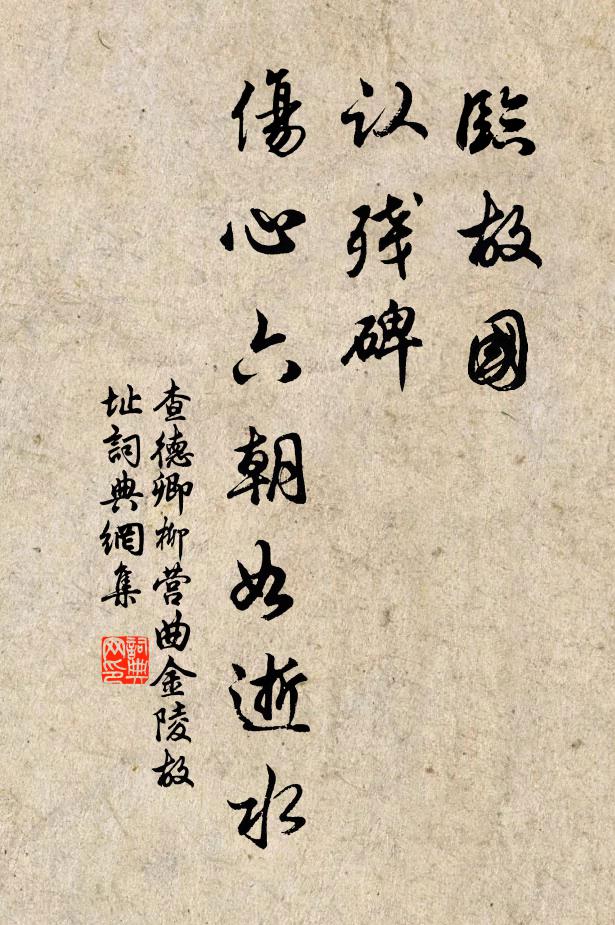 臨故國
认残碑
傷心六朝如逝水
查德卿柳营曲金陵故
址詞典網集
詞典
网印